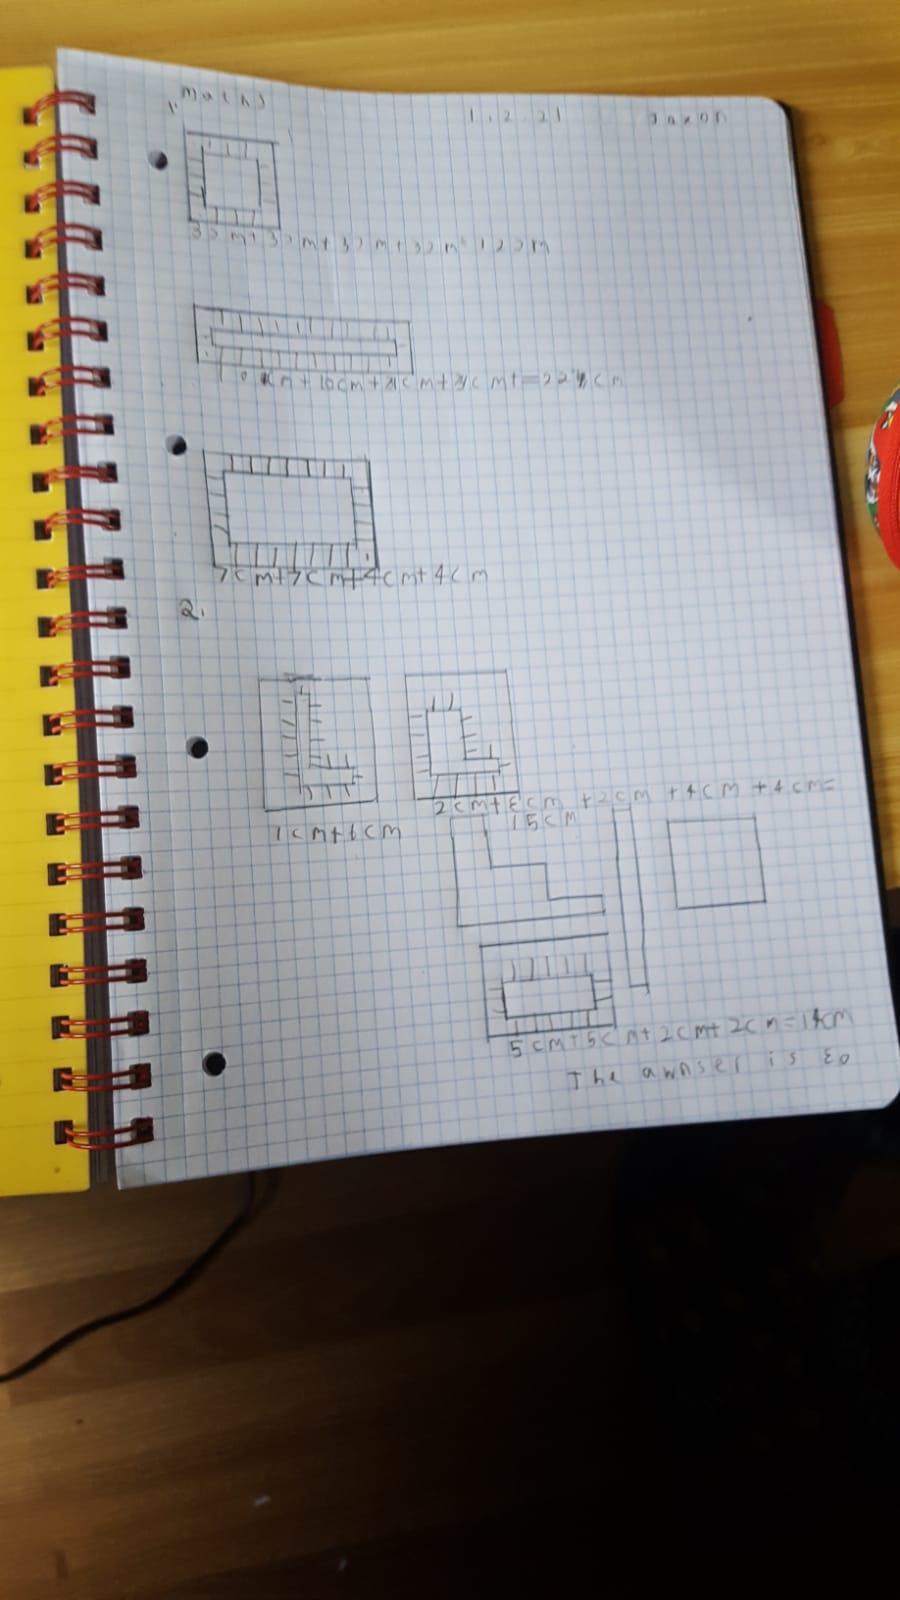 maths 1.2.21 Jaxon
1.
3cm+3cm+3cm+3cm=12cm
10cm+10cm+ cm+ cm+=22 cm
7cm+7cm+4cm+4cm
2.
2cm+ cm+2cm+4cm+4cm=
1cm+6cm 15cm
5cm+5cm+2cm+2cm=14cm
The awnser is